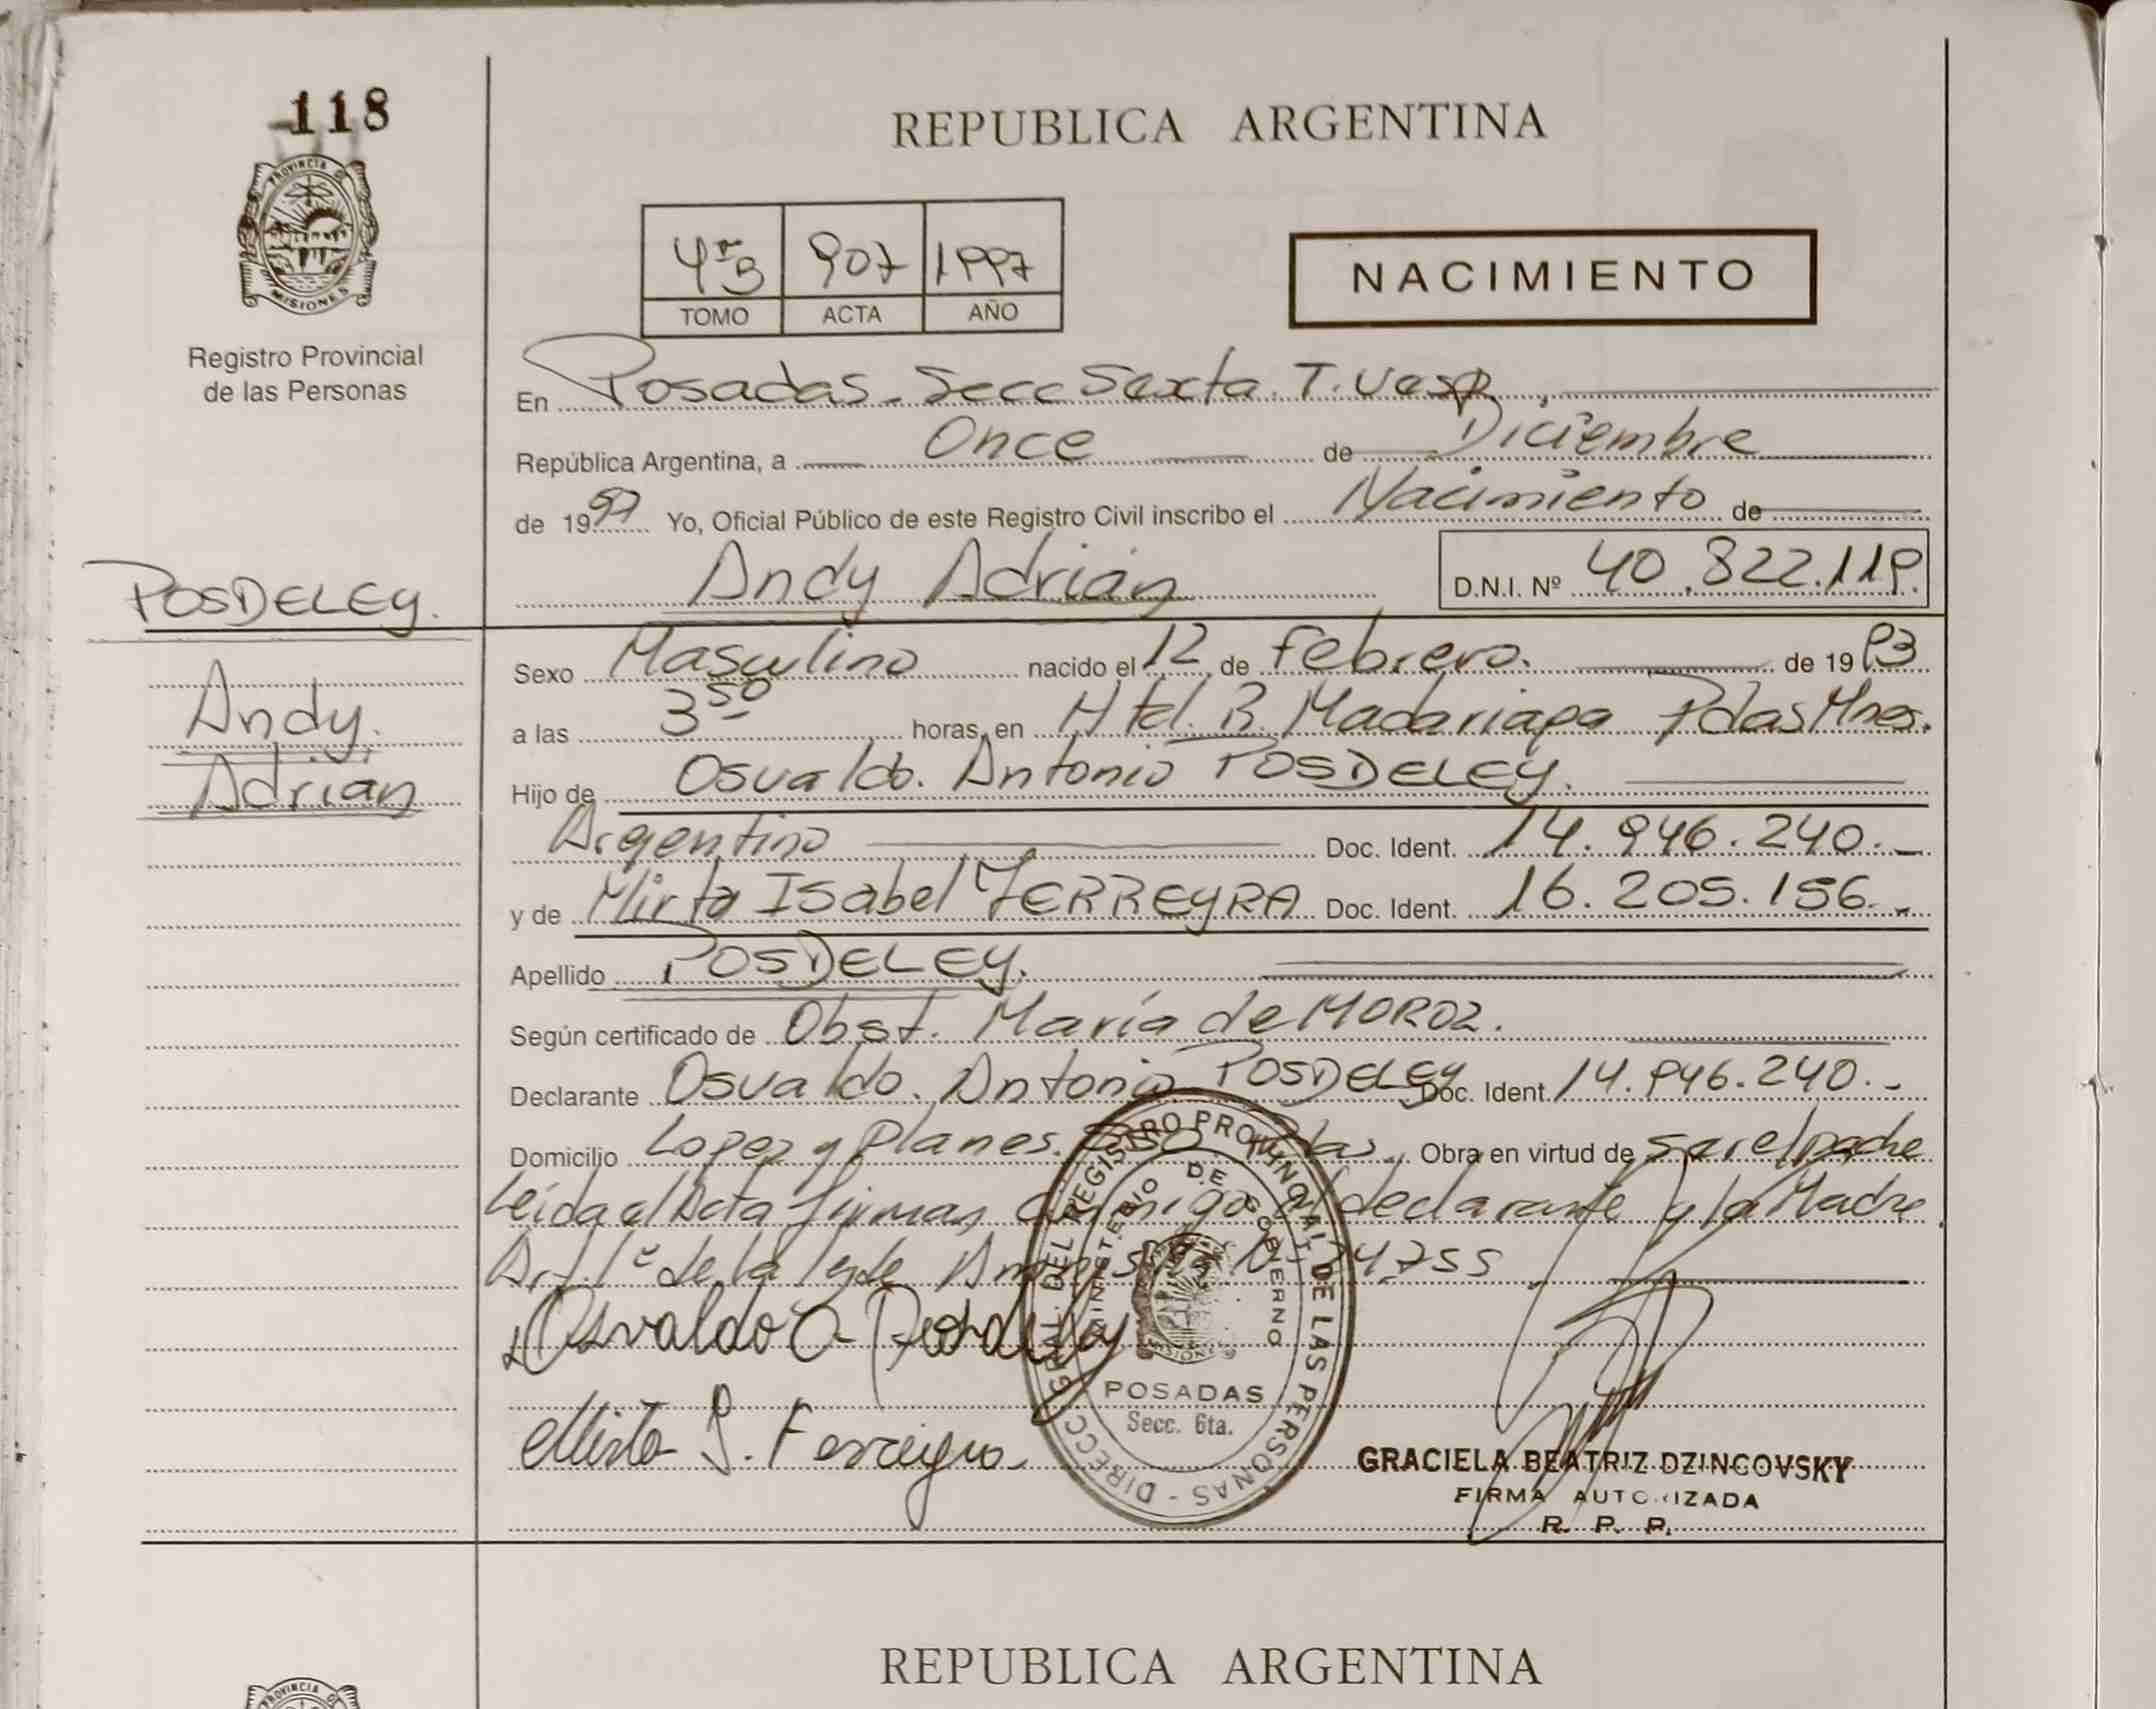 118
PROVINCIA DE
MISIONES
Registro Provincial
de las Personas
REPUBLICA ARGENTINA
907 1997
TOMO ACTA AÑO
NACIMIENTO
En Posadas - Secc Sexta. T. Vesp.
República Argentina, a Once de Diciembre
de 1997 Yo, Oficial Público de este Registro Civil inscribo el Nacimiento de
Andy Adrián D.N.I. Nº 40.822.119.
POSDELEY.
Andy
Adrian
Sexo Masculino nacido el 12 de Febrero. de 1993
a las 3 50 horas, en Htal. R. Madariaga Pdas Mnes.
Hijo de Osvaldo. Antonio POSDELEY.
Argentino Doc. Ident. 14.946.240.-
y de Mirta Isabel FERREYRA Doc. Ident. 16.205.156.-
Apellido POSDELEY.
Según certificado de Obst. María de MOROZ.
Declarante Osvaldo. Antonio POSDELEY Doc. Ident. 14.946.240.-
Domicilio Lopez y Planes. Pdas. Obra en virtud de ser el padre
Leida el Acta firman conmigo el declarante y la Madre
Art. 1º de la ley de 24.755
Osvaldo A Posdeley
Mirta I. Ferreyra
DIRECC. GRAL. DEL REGISTRO PROVINCIAL DE LAS PERSONAS -
MINISTERIO DE GOBIERNO
MISIONES
POSADAS
Secc. 6ta.
GRACIELA BEATRIZ DZINCOVSKY
FIRMA AUTORIZADA
R. P. P.
REPUBLICA ARGENTINA
PROVINCIA DE